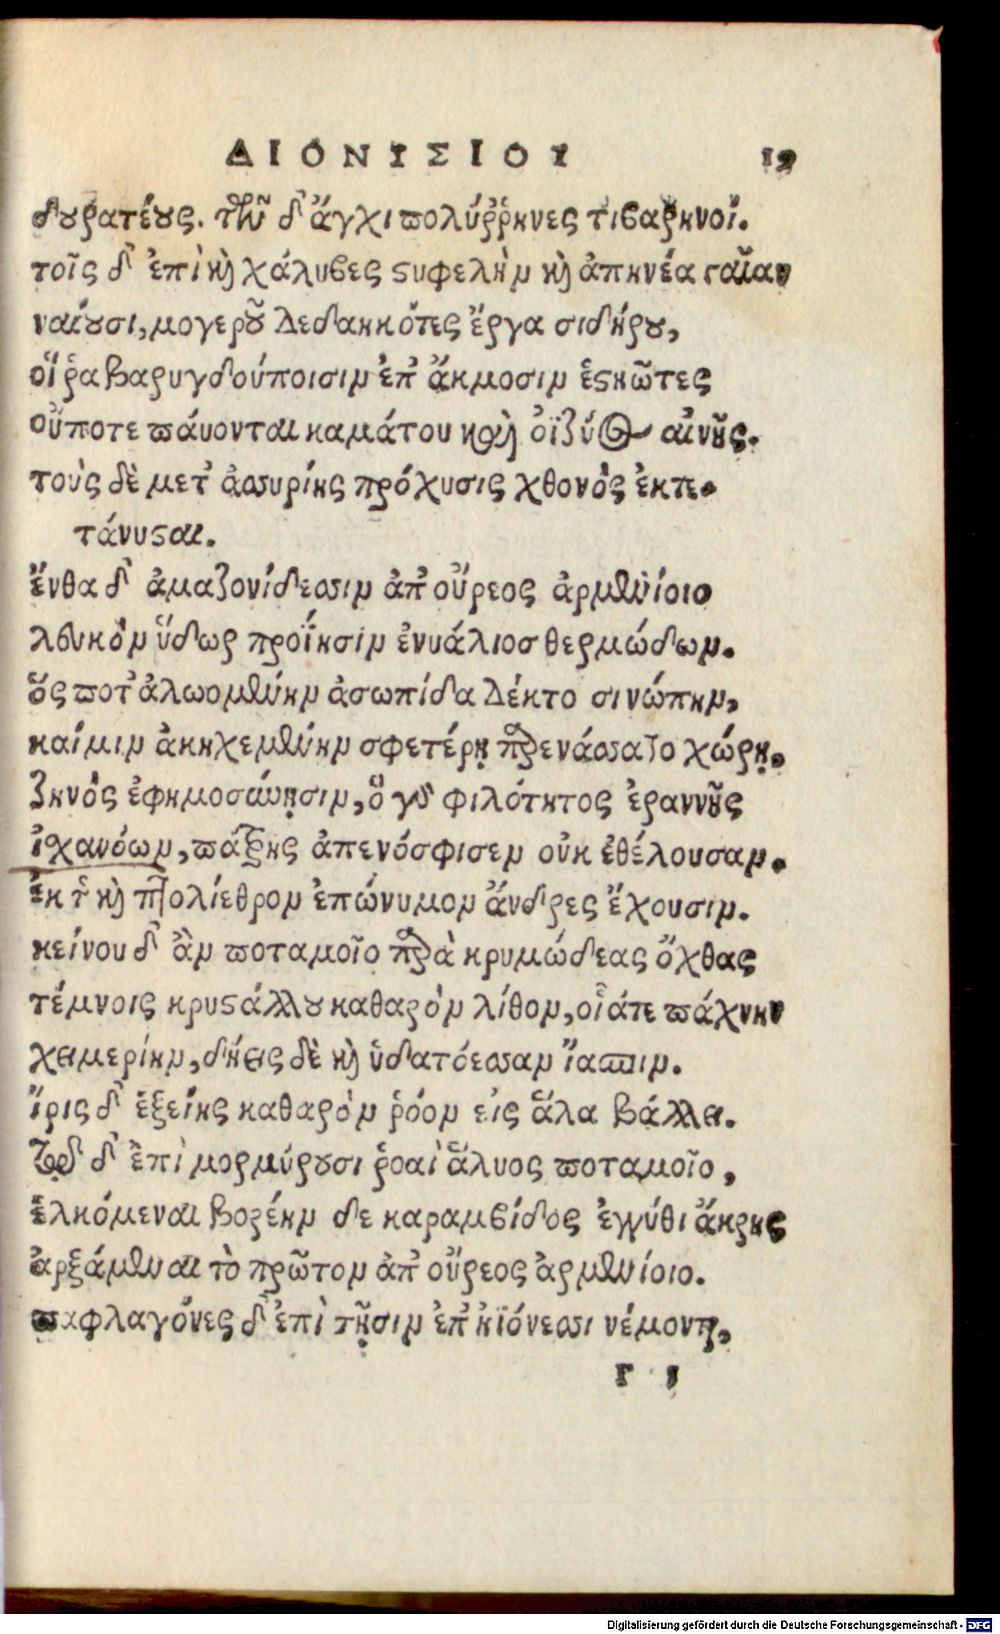 ΔΙΟΝΥΣΙΟΥ 19
δουρατέους. τῶν δ' ἄγχι πολύῤῥηνες τιβαρηνοί.
τοῖς δ' ἐπὶ καὶ χάλυβες στυφελὴν καὶ ἀπηνέα γαῖαν
ναίουσι, μογεροῦ δεδαηκότες ἔργα σιδήρου,
οἵ ῥα βαρυγδούποισιν ἐπ' ἄκμοσιν ἑστηῶτες
οὔποτε παύονται καμάτου καὶ ὀϊζύος αἰνῆς.
τοὺς δὲ μετ' ἀσσυρίης πρόχυσις χθονὸς ἐκτε-
τάνυσται.
ἔνθα δ' ἀμαζονίδεσσιν ἀπ' οὔρεος ἀρμηνίοιο
λευκὸν ὕδωρ προΐησιν ἐνυάλιος θερμώδων.
ὅς ποτ' ἀλωομένην ἀσωπίδα δέκτο σινώπην,
καί μιν ἀκηχεμένην σφετέρῃ παρενάσσατο χώρῃ.
ζηνὸς ἐφημοσύνῃσιν, ὃ γὰρ φιλότητος ἐραννῆς
ἰχανόων, πάτρης ἀπενόσφισεν οὐκ ἐθέλουσαν.
ἐκ τῆς καὶ πτολίεθρον ἐπώνυμον ἄνδρες ἔχουσιν.
κείνου δ' ἂν ποταμοῖο παρὰ κρυμώδεας ὄχθας
τέμνοις κρυστάλλου καθαρὸν λίθον, οἷάτε πάχνην
χειμερίην, δήεις δὲ καὶ ὑδατόεσσαν ἴασπιν.
ἶρις δ' ἑξείης καθαρὸν ῥόον εἰς ἅλα βάλλει.
τῷ δ' ἐπὶ μορμύρουσι ῥοαὶ ἅλυος ποταμοῖο,
ἑλκόμεναι βορέην δε καραμβίδος ἐγγύθι ἄκρης
ἀρξάμεναι τὸ πρῶτον ἀπ' οὔρεος ἀρμενίοιο.
παφλαγόνες δ' ἐπὶ τῇσιν ἐπ' ἠϊόνεσσι νέμονται,
Γ 1
Digitalisierung gefördert durch die Deutsche Forschungsgemeinschaft - DFG